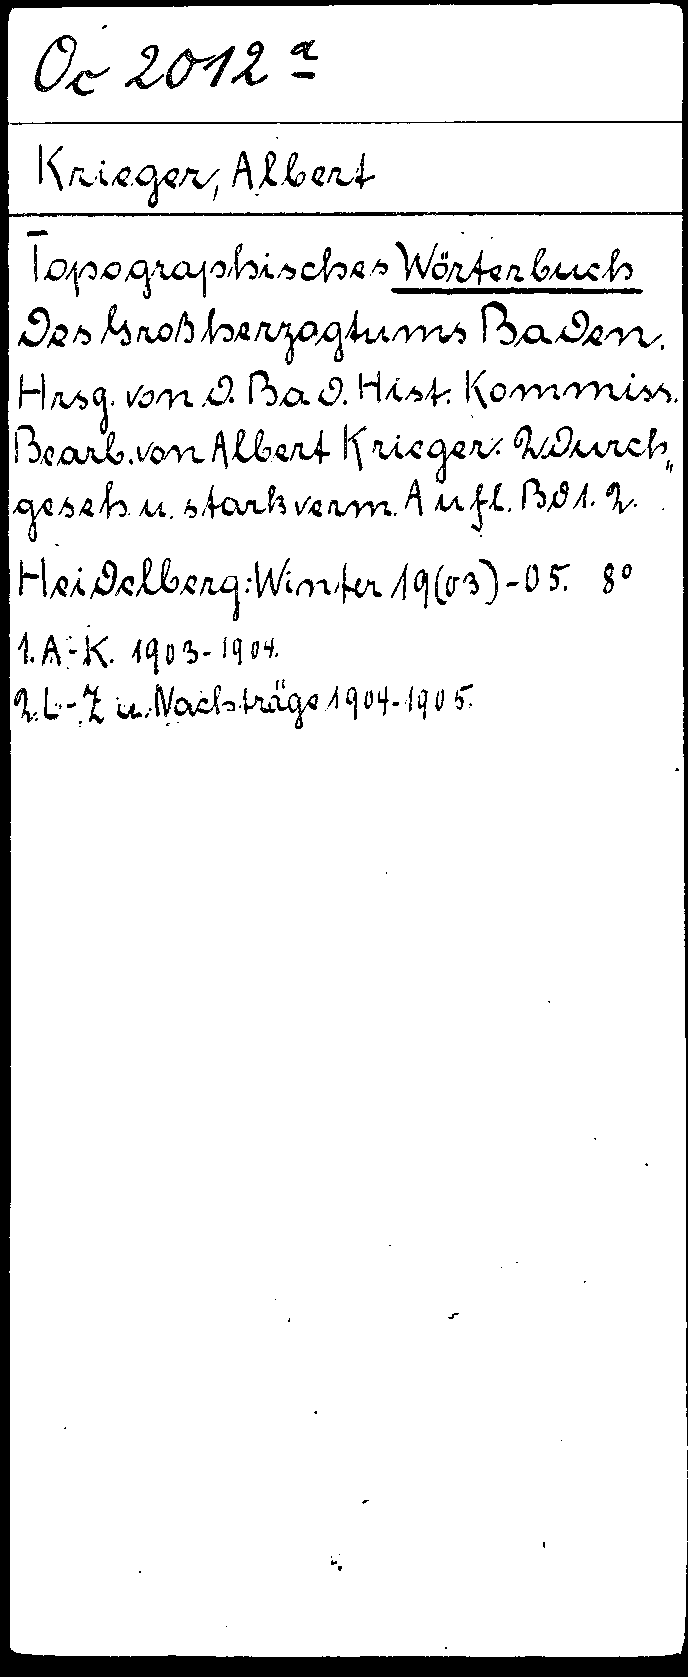 Oc 2012 a
Krieger, Albert
Topographisches Wörterbuch
des Großherzogtums Baden.
Hrsg. von d. Bad. Hist. Kommiss.
Bearb. von Albert Krieger. 2. durch„
geseh. u. stark verm. Aufl. Bd 1. 2.
Heidelberg: Winter 19(03)-05. 8°
1. A-K. 1903-1904.
2. L-Z u. Nachträge 1904-1905.